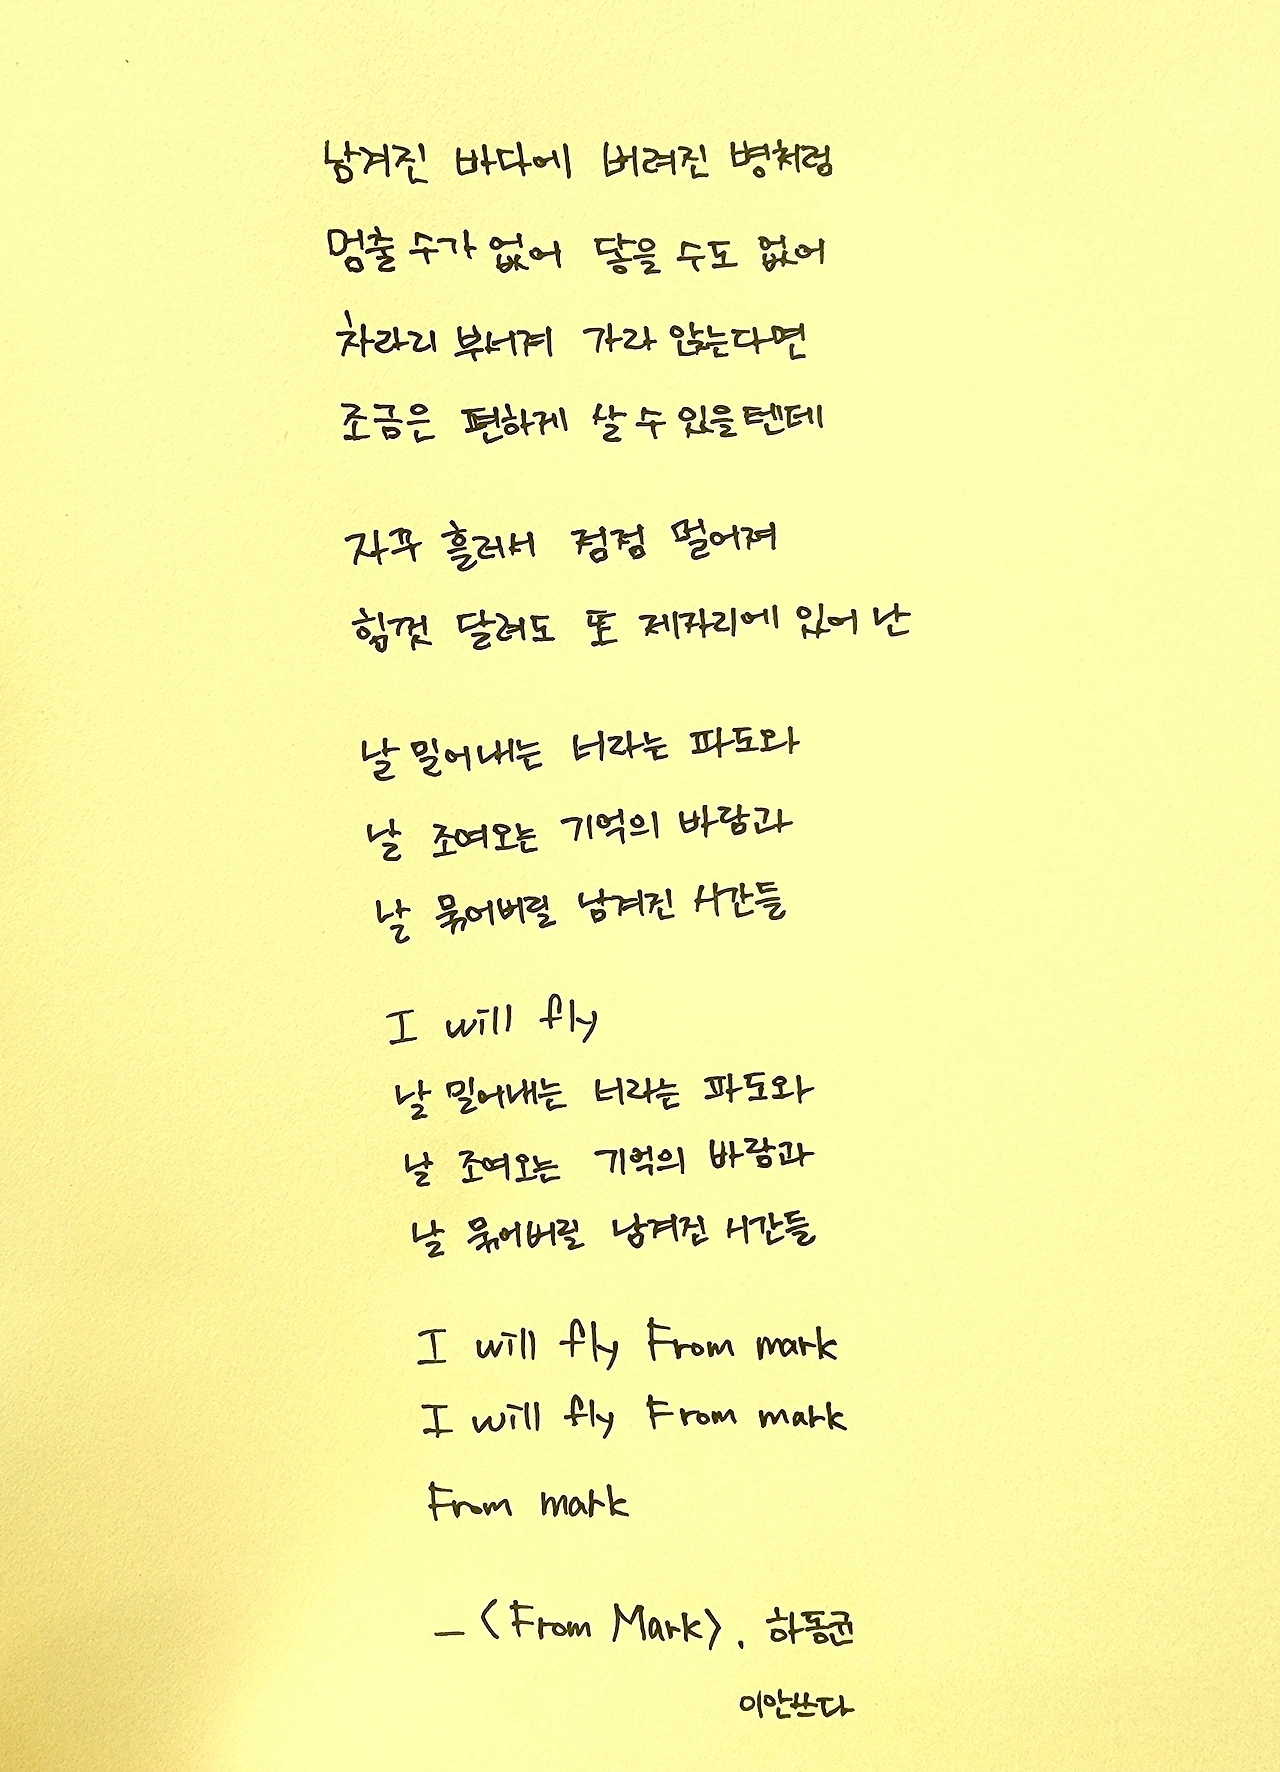 남겨진 바다에 버려진 병처럼
멈출 수가 없어 닿을 수도 없어
차라리 부서져 가라 앉는다면
조금은 편하게 살 수 있을텐데
자꾸 흘러서 점점 멀어져
힘껏 달려도 또 제자리에 있어 난
날 밀어내는 너라는 파도와
날 조여오는 기억의 바람과
날 묶어버릴 남겨진 시간들
I will fly
날 밀어내는 너라는 파도와
날 조여오는 기억의 바람과
날 묶어버릴 남겨진 시간들
I will fly From mark
I will fly From mark
From mark
- <From Mark>, 하동균
이안쓰다